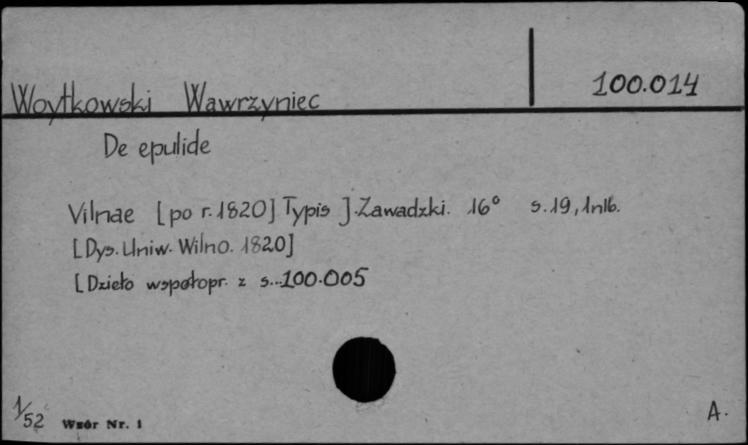 Woytkowski Wawrzyniec 100.014
De epulide
Vilnae [po r. 1820] Typis J. Zawadzki. 16° s. 19, 1nlb.
[Dys. Uniw. Wilno. 1820]
[Dzieło współopr. z s...100.005
1/52 Wzór Nr. 1 A.